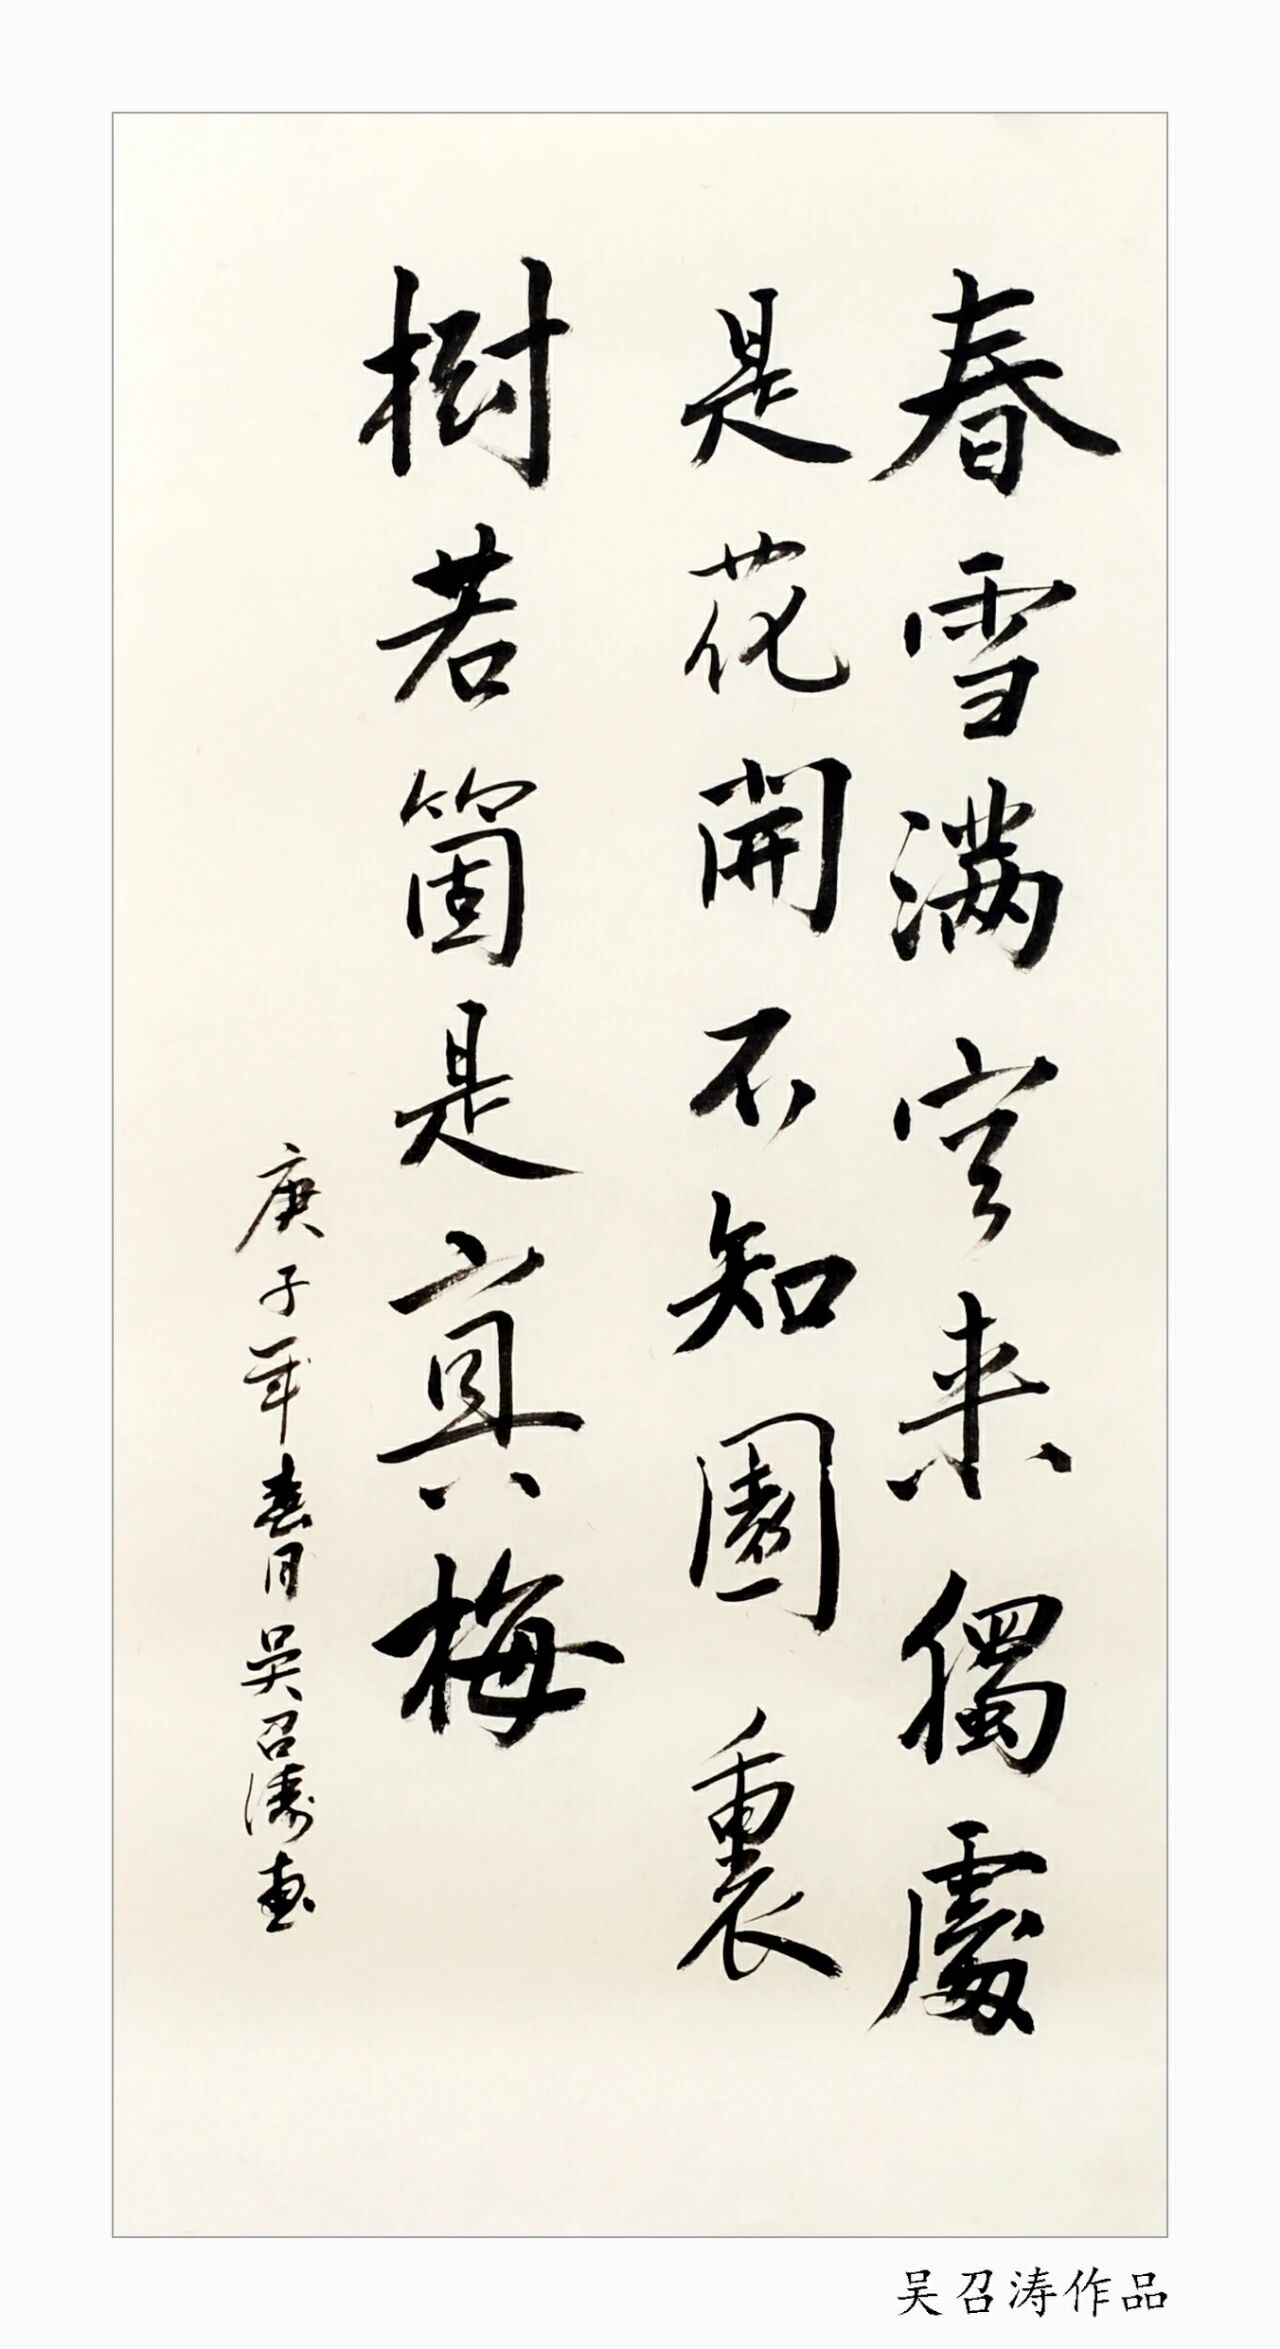 春雪满空来獨處
是花開不知園裏
樹若箇是真梅
庚子年春月吴召涛書
吴召涛作品